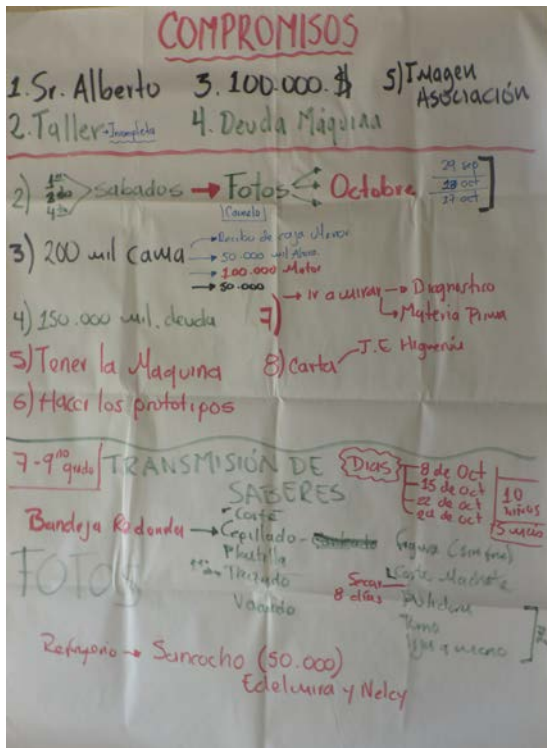 COMPROMISOS
1. Sr. Alberto 3. 100.000.$ 5) Imagen Asociación
2. Taller Incompleta 4. Deuda Máquina
2) sabados → Fotos Octobre 29. sep
Camelo 13 oct
27 oct
3) 200 mil Cama → Recibo de caja Menor
→ 50.000 mil
→ 100.000 Motor
→ 50.000
4) 150.000 mil. deuda
7) → Ir a mirar → Diagnostico
Materia Prima
5) Tener la Maquina
8) Carta J.E Higuerón
6) Hacer los prototipos
7-9no grado TRANSMISIÓN DE SABERES
DIAS 8 de Oct
15 de oct
22 de oct
de oct
10 niños
Bandeja Redonda → Corte
Cepillado -
Plantilla
Trazado
Vaciado
Figura
Secar 8 días
Corte Machete
Pulidora
Torno
FOTOS
Refrigerio → Sancocho (50.000)
Edelmira y Nelcy